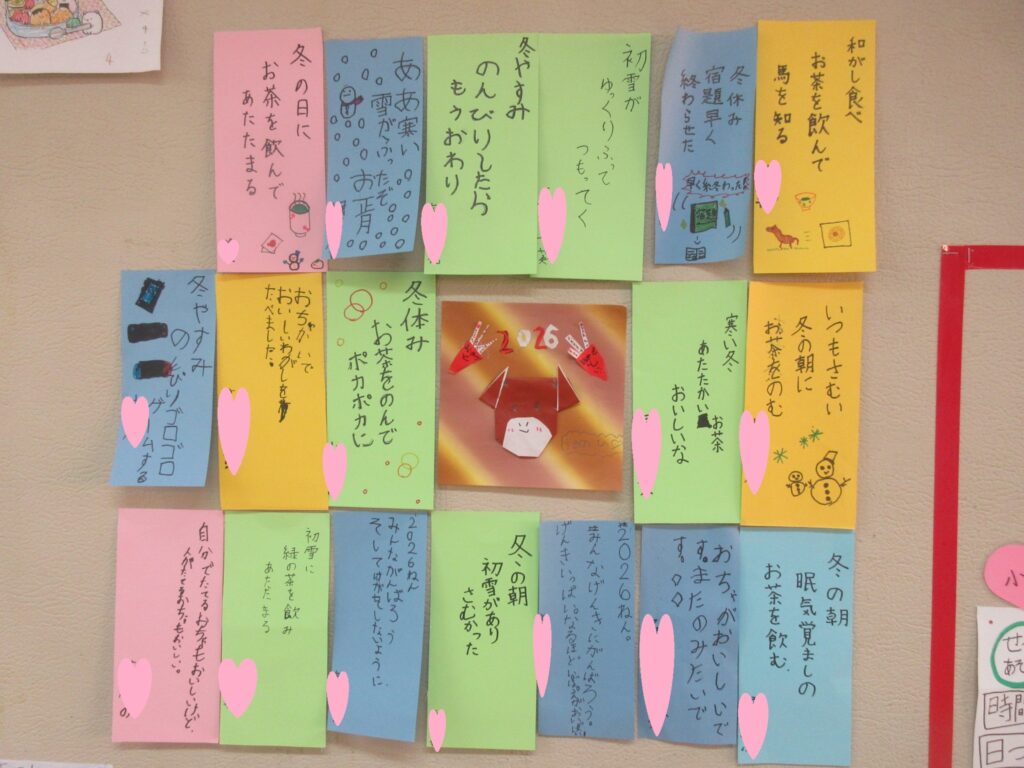 和がし食べ
お茶を飲んで
馬を知る
冬休み
宿題早く
終わらせた
早く終わったぁ
宿題
初雪が
ゆっくりふって
つもってく
冬やすみ
のんびりしたら
もぅおわり
ああ寒い
雪がふったぞ
お正月
冬の日に
お茶を飲んで
あたたまる
いつもさむい
冬の朝に
お茶をのむ
寒い冬
あたたかいお茶
おいしいな
2026
冬休み
お茶をのんで
ポカポカに
おちゃかいで
おいしいわがしを
たべました。
冬やすみ
のんびりゴロゴロ
ゲームする
冬の朝
眠気覚ましの
お茶を飲む
おちゃがおいしいで
す。またのみたいで
す。
2026ねん。
みんなげんきにがんばろう。
冬の朝
初雪があり
さむかった
2026ねん
みんながんばろう
そしてけがせしないように
初雪に
緑の茶を飲み
あたたまる
自分でたてるおちゃもおいしいけど、
4
小
せ
あそ
時間
日